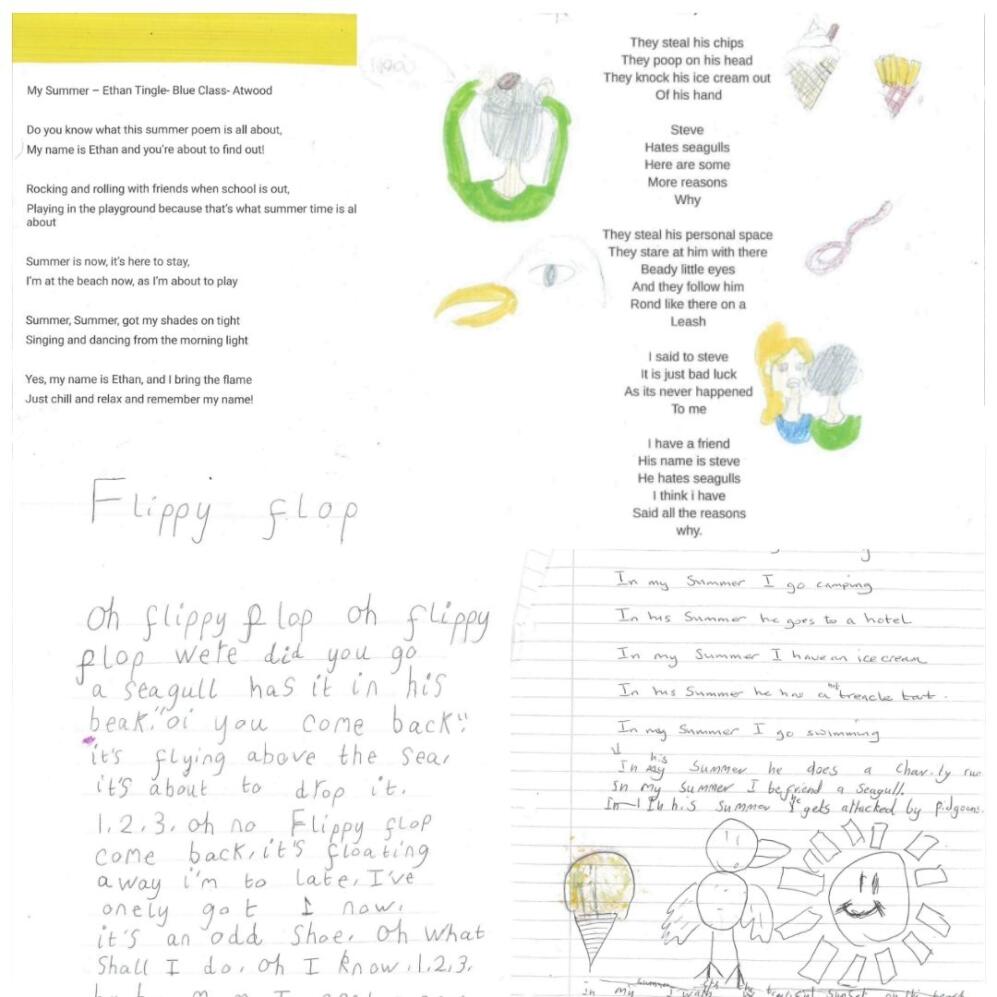 My Summer – Ethan Tingle- Blue Class- Atwood
Do you know what this summer poem is all about,
My name is Ethan and you're about to find out!
Rocking and rolling with friends when school is out,
Playing in the playground because that's what summer time is al
about
Summer is now, it's here to stay,
I'm at the beach now, as I'm about to play
Summer, Summer, got my shades on tight
Singing and dancing from the morning light
Yes, my name is Ethan, and I bring the flame
Just chill and relax and remember my name!
They steal his chips
They poop on his head
They knock his ice cream out
Of his hand
Steve
Hates seagulls
Here are some
More reasons
Why
They steal his personal space
They stare at him with there
Beady little eyes
And they follow him
Rond like there on a
Leash
I said to steve
It is just bad luck
As its never happened
To me
I have a friend
His name is steve
He hates seagulls
I think i have
Said all the reasons
why.
Flippy flop
Oh flippy flop oh flippy
flop were did you go
a seagull has it in his
beak. "oi you come back"
it's flying above the sea,
it's about to drop it.
1.2.3. oh no Flippy flop
come back, it's floating
away i'm to late, I've
onely got 1 now.
it's an odd shoe. Oh what
Shall I do. oh I know .1.2.3.
In my Summer I go camping
In his Summer he goes to a hotel
In my Summer I have an ice cream
In his Summer he has a hot treacle tart.
In my Summer I go swimming
In his Summer he does a charity run
In my Summer I befriend a seagull.
In his Summer he gets attacked by pidgeons.